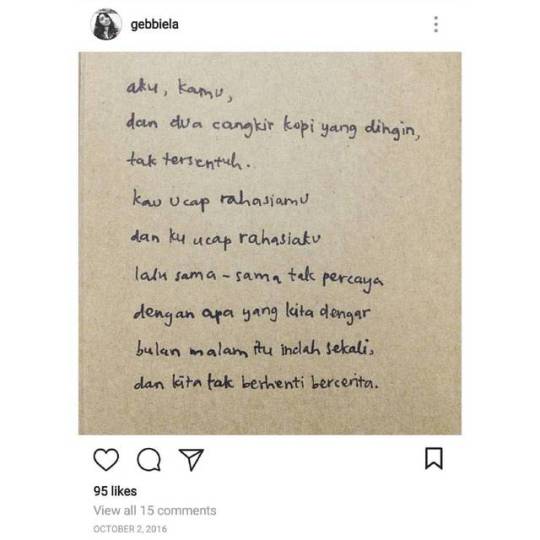 gebbiela
aku, kamu,
dan dua cangkir kopi yang dingin,
tak tersentuh.
kau ucap rahasiamu
dan ku ucap rahasiaku
lalu sama-sama tak percaya
dengan apa yang kita dengar
bulan malam itu indah sekali,
dan kita tak berhenti bercerita.
95 likes
View all 15 comments
OCTOBER 2, 2016